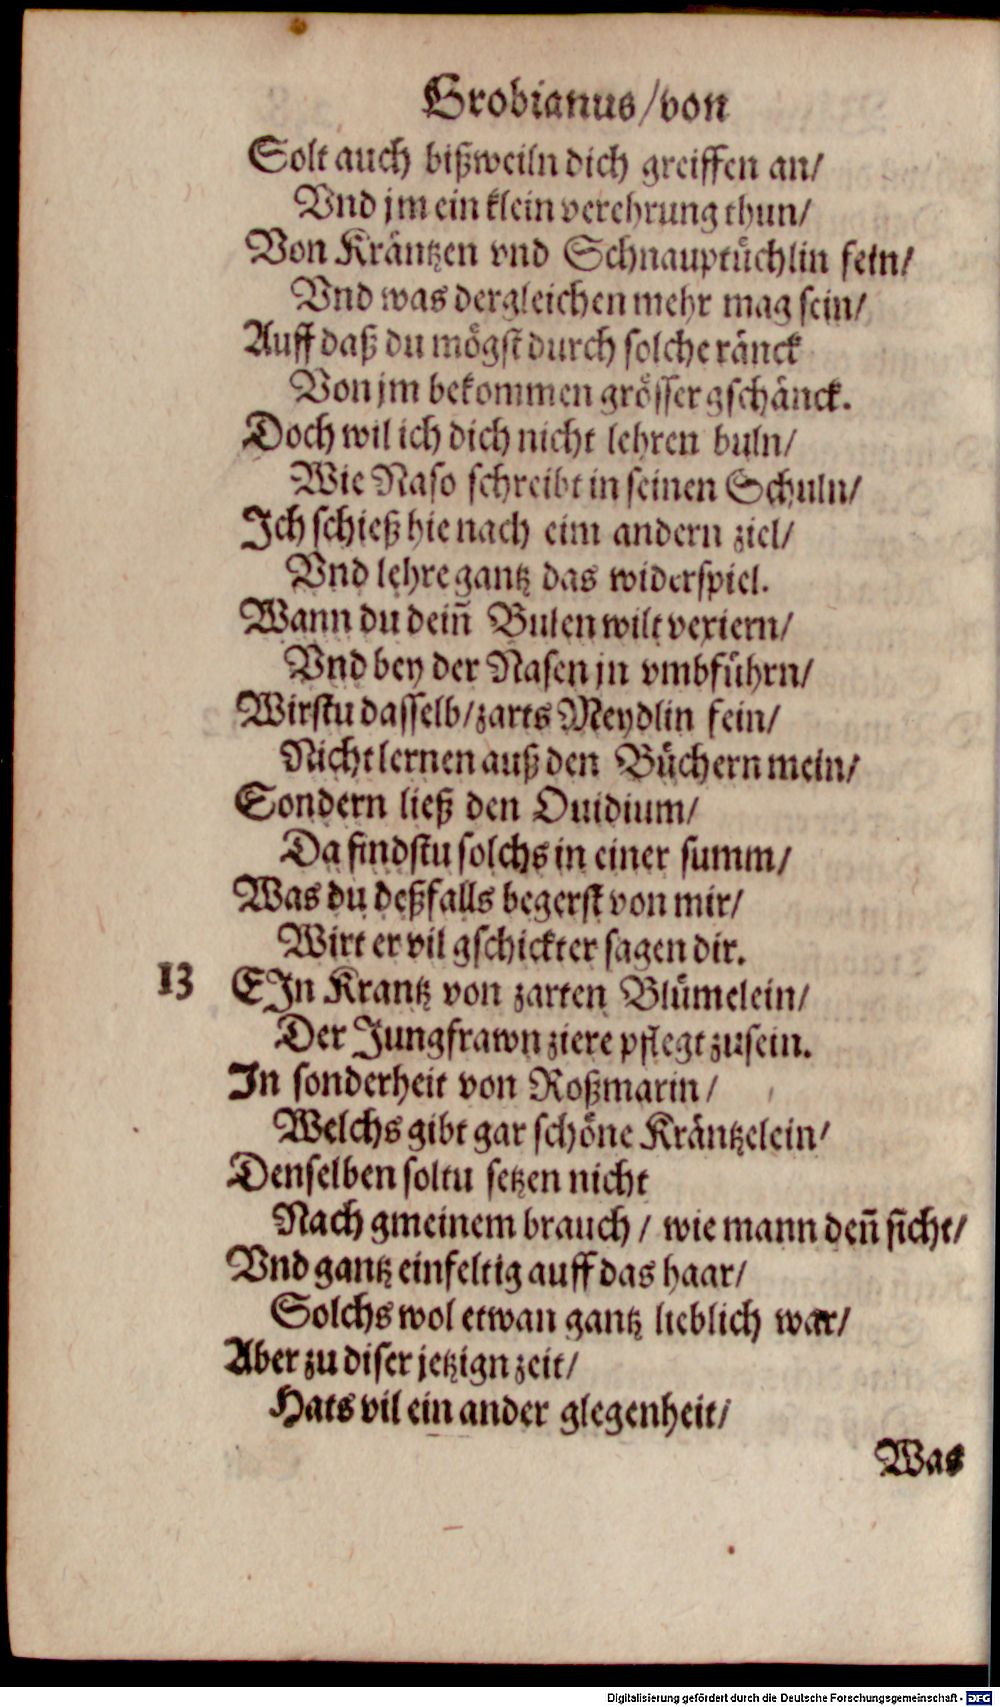 Grobianus/von
Solt auch bißweiln dich greiffen an/
Vnd jm ein klein verehrung thun/
Von Kräntzen vnd Schnauptüchlin fein/
Vnd was dergleichen mehr mag sein/
Auff daß du mögst durch solche ränck
Von jm bekommen grösser gschänck.
Doch wil ich dich nicht lehren buln/
Wie Naso schreibt in seinen Schuln/
Ich schieß hie nach eim andern ziel/
Vnd lehre gantz das widerspiel.
Wann du dein̄ Bulen wilt vexiern/
Vnd bey der Nasen jn vmbführn/
Wirstu dasselb/zarts Meydlin fein/
Nicht lernen auß den Büchern mein/
Sondern ließ den Ouidium/
Da findstu solchs in einer summ/
Was du deßfalls begerst von mir/
Wirt er vil gschickter sagen dir.
13 EIn Krantz von zarten Blümelein/
Der Jungfrawn ziere pflegt zusein.
In sonderheit von Roßmarin/
Welchs gibt gar schöne Kräntzelein/
Denselben soltu setzen nicht
Nach gmeinem brauch/ wie mann den̄ sicht/
Vnd gantz einfeltig auff das haar/
Solchs wol etwan gantz lieblich war/
Aber zu diser jetzign zeit/
Hats vil ein ander glegenheit/
Was
Digitalisierung gefördert durch die Deutsche Forschungsgemeinschaft - DFG